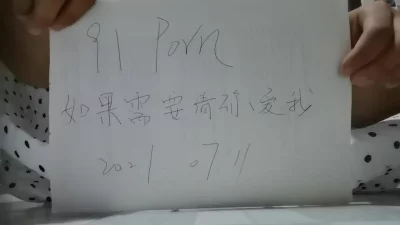 91 Porn
如果需要请你爱我
2021.07 11